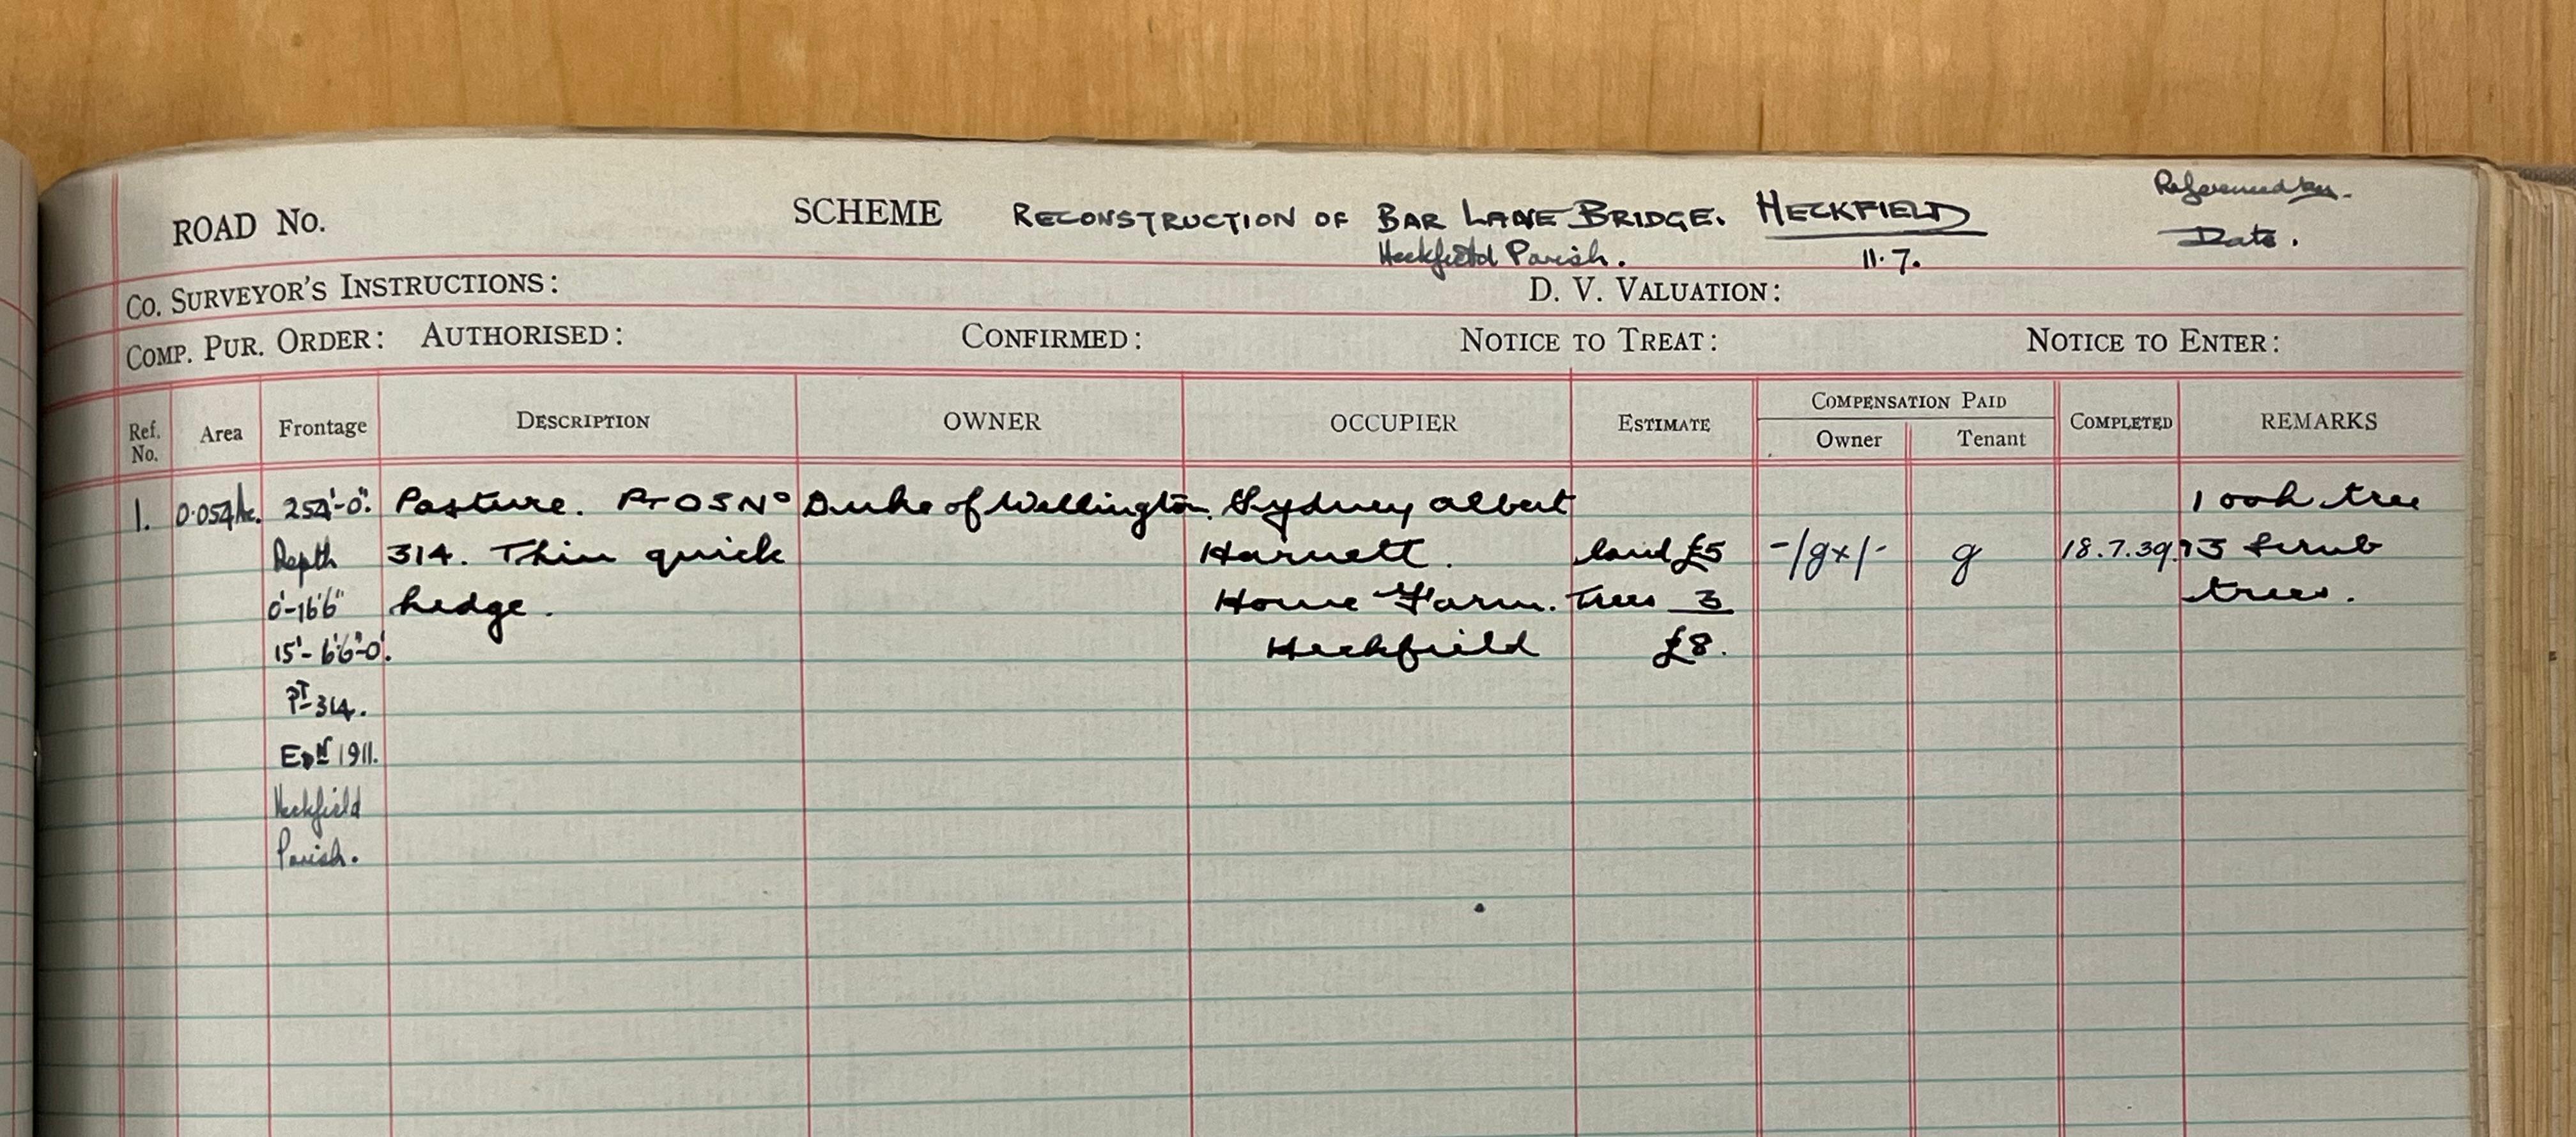 Referenced by.
ROAD No. SCHEME RECONSTRUCTION OF BAR LANE BRIDGE. HECKFIELD
Date.
Heckfield Parish. 11.7.
Co. SURVEYOR'S INSTRUCTIONS: D. V. VALUATION:
COMP. PUR. ORDER: AUTHORISED: CONFIRMED: NOTICE TO TREAT: NOTICE TO ENTER:
COMPENSATION PAID
Ref. No. Area Frontage DESCRIPTION OWNER OCCUPIER ESTIMATE Owner Tenant COMPLETED REMARKS
1. 0.054Ac. 254'-0". Pasture. Pt OS No Duke of Wellington. Sydney Albert 1 oak tree
Depth 314. Thin quick Harnett. land £5 -/gx/- g 18.7.39. 13 Scrub
0'-16'6" hedge. Home Farm. Trees 3 trees.
15'-6'6"-0'. Heckfield £8.
PT 314.
EDN 1911.
Heckfield
Parish.